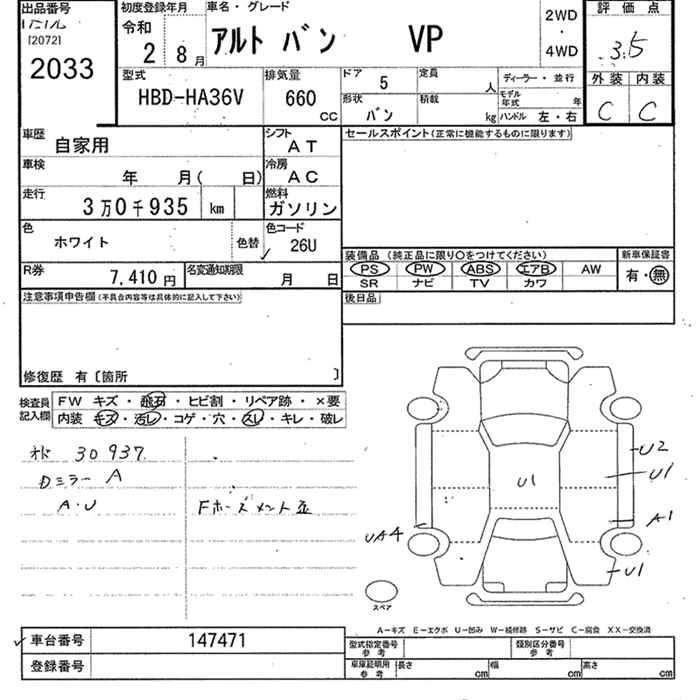 出品番号
[2072]
2033
初度登録年月
令和
2 8月
車名・グレード
アルト バン VP
2WD
・
4WD
評価点
3.5
外装 内装
C C
型式
HBD-HA36V
排気量
660 CC
ドア 5
定員 人
形状 バン
積載 kg
ディーラー・並行
モデル年式 年
ハンドル 左・右
車歴
自家用
シフト
AT
車検
年 月( 日)
冷房
AC
走行
3万0千935 km
燃料
ガソリン
色
ホワイト
色替
色コード
26U
R券
7,410 円
名変通知期限
月 日
セールスポイント(正常に機能するものに限ります)
装備品 (純正品に限り○をつけてください)
PS PW ABS エアB AW
SR ナビ TV カワ
新車保証書
有・無
後日品
注意事項申告欄(不具合内容等は具体的に記入して下さい)
修復歴 有〔箇所 〕
検査員
記入欄
FW キズ・飛石・ヒビ割・リペア跡・×要
内装 キズ・汚レ・コゲ・穴・スレ・キレ・破レ
30937
Dミラー A
A・U
U2
U1
U1
A1
UA4
U1
スペア
A-キズ E-エクボ U-凹み W-補修跡 S-サビ C-腐食 XX-交換済
車台番号 147471
登録番号
型式指定番号
参考
類別区分番号
参考
車庫証明用
参考
長さ cm 幅 cm 高さ cm